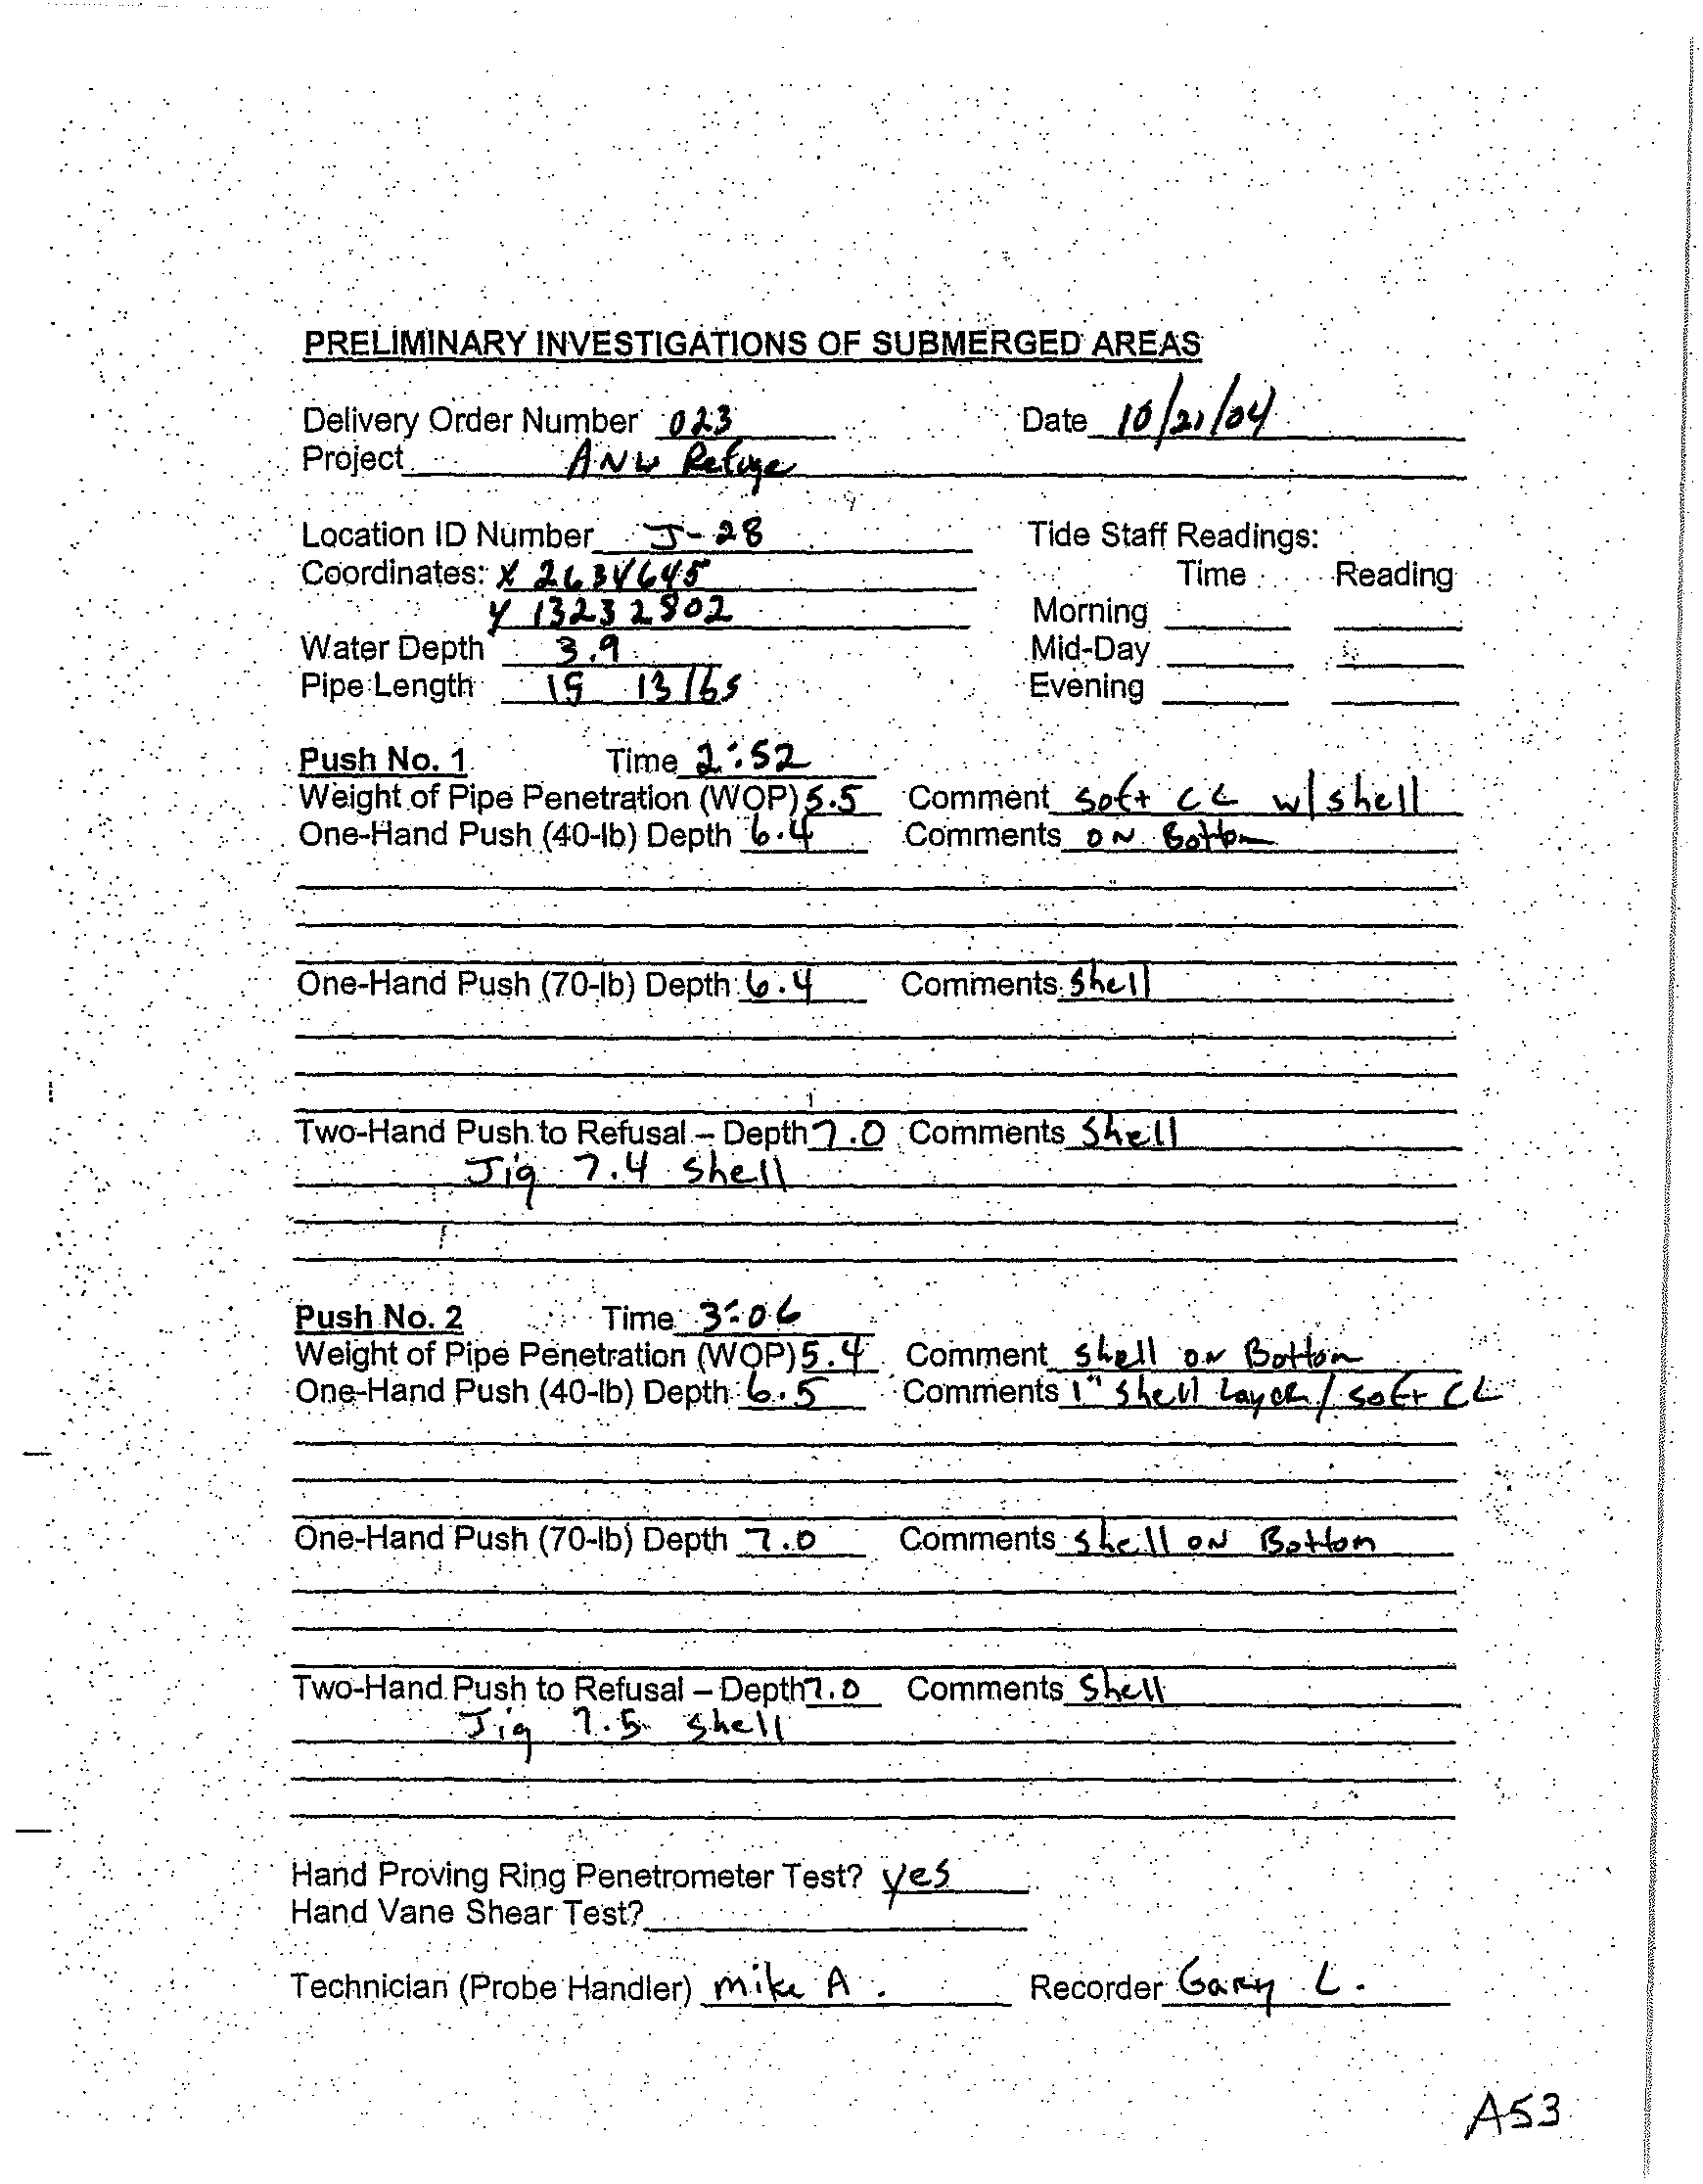 PRELIMINARY INVESTIGATIONS OF SUBMERGED AREAS
Delivery Order Number 023 Date 10/21/04
Project ANW Refuge
Location ID Number J-28 Tide Staff Readings:
Coordinates: X 2634645 Time Reading
Y 13232802 Morning
Water Depth 3.9 Mid-Day
Pipe Length 15 13 lbs Evening
Push No. 1 Time 2:52
Weight of Pipe Penetration (WOP) 5.5 Comment Soft CL w/shell
One-Hand Push (40-lb) Depth 6.4 Comments ON Bottom
One-Hand Push (70-lb) Depth 6.4 Comments Shell
Two-Hand Push to Refusal – Depth 7.0 Comments Shell
Jig 7.4 Shell
Push No. 2 Time 3:06
Weight of Pipe Penetration (WOP) 5.4 Comment Shell ON Bottom
One-Hand Push (40-lb) Depth 6.5 Comments 1" Shell Layer / Soft CL
One-Hand Push (70-lb) Depth 7.0 Comments Shell ON Bottom
Two-Hand Push to Refusal – Depth 7.0 Comments Shell
Jig 7.5 Shell
Hand Proving Ring Penetrometer Test? yes
Hand Vane Shear Test?
Technician (Probe Handler) Mike A. Recorder Gary L.
A53